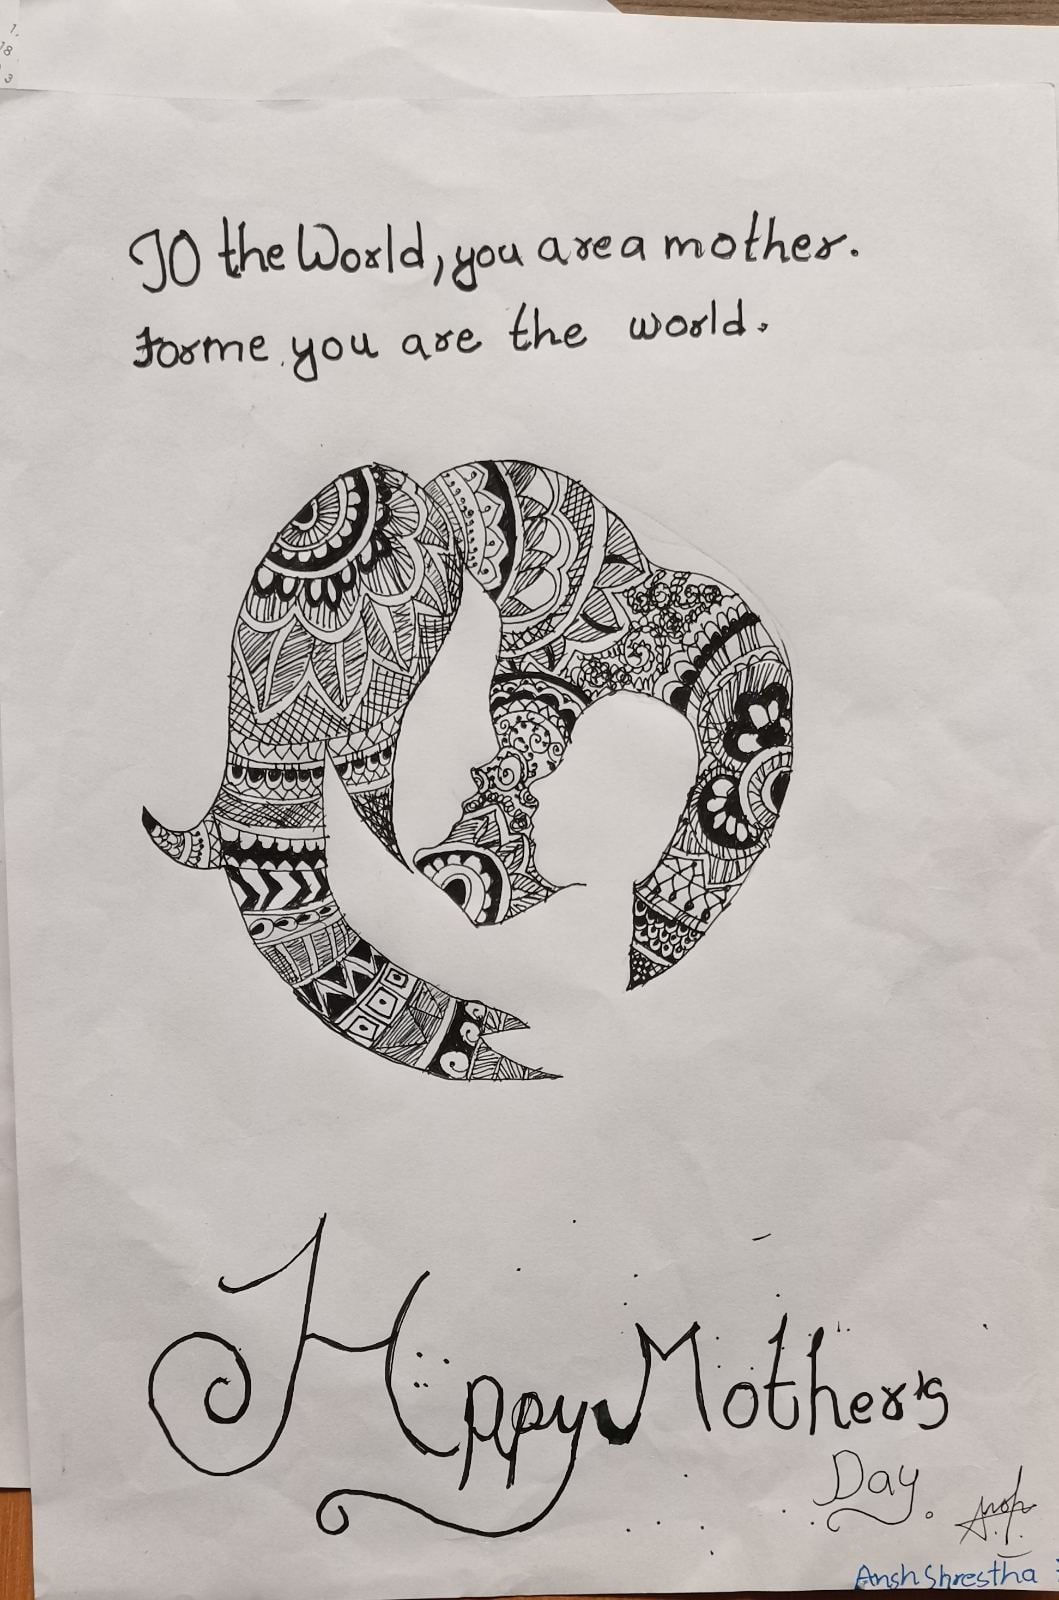 1.
18
3
TO the World, you are a mother.
For me you are the world.
Happy Mother's
Day.
Ansh Shrestha